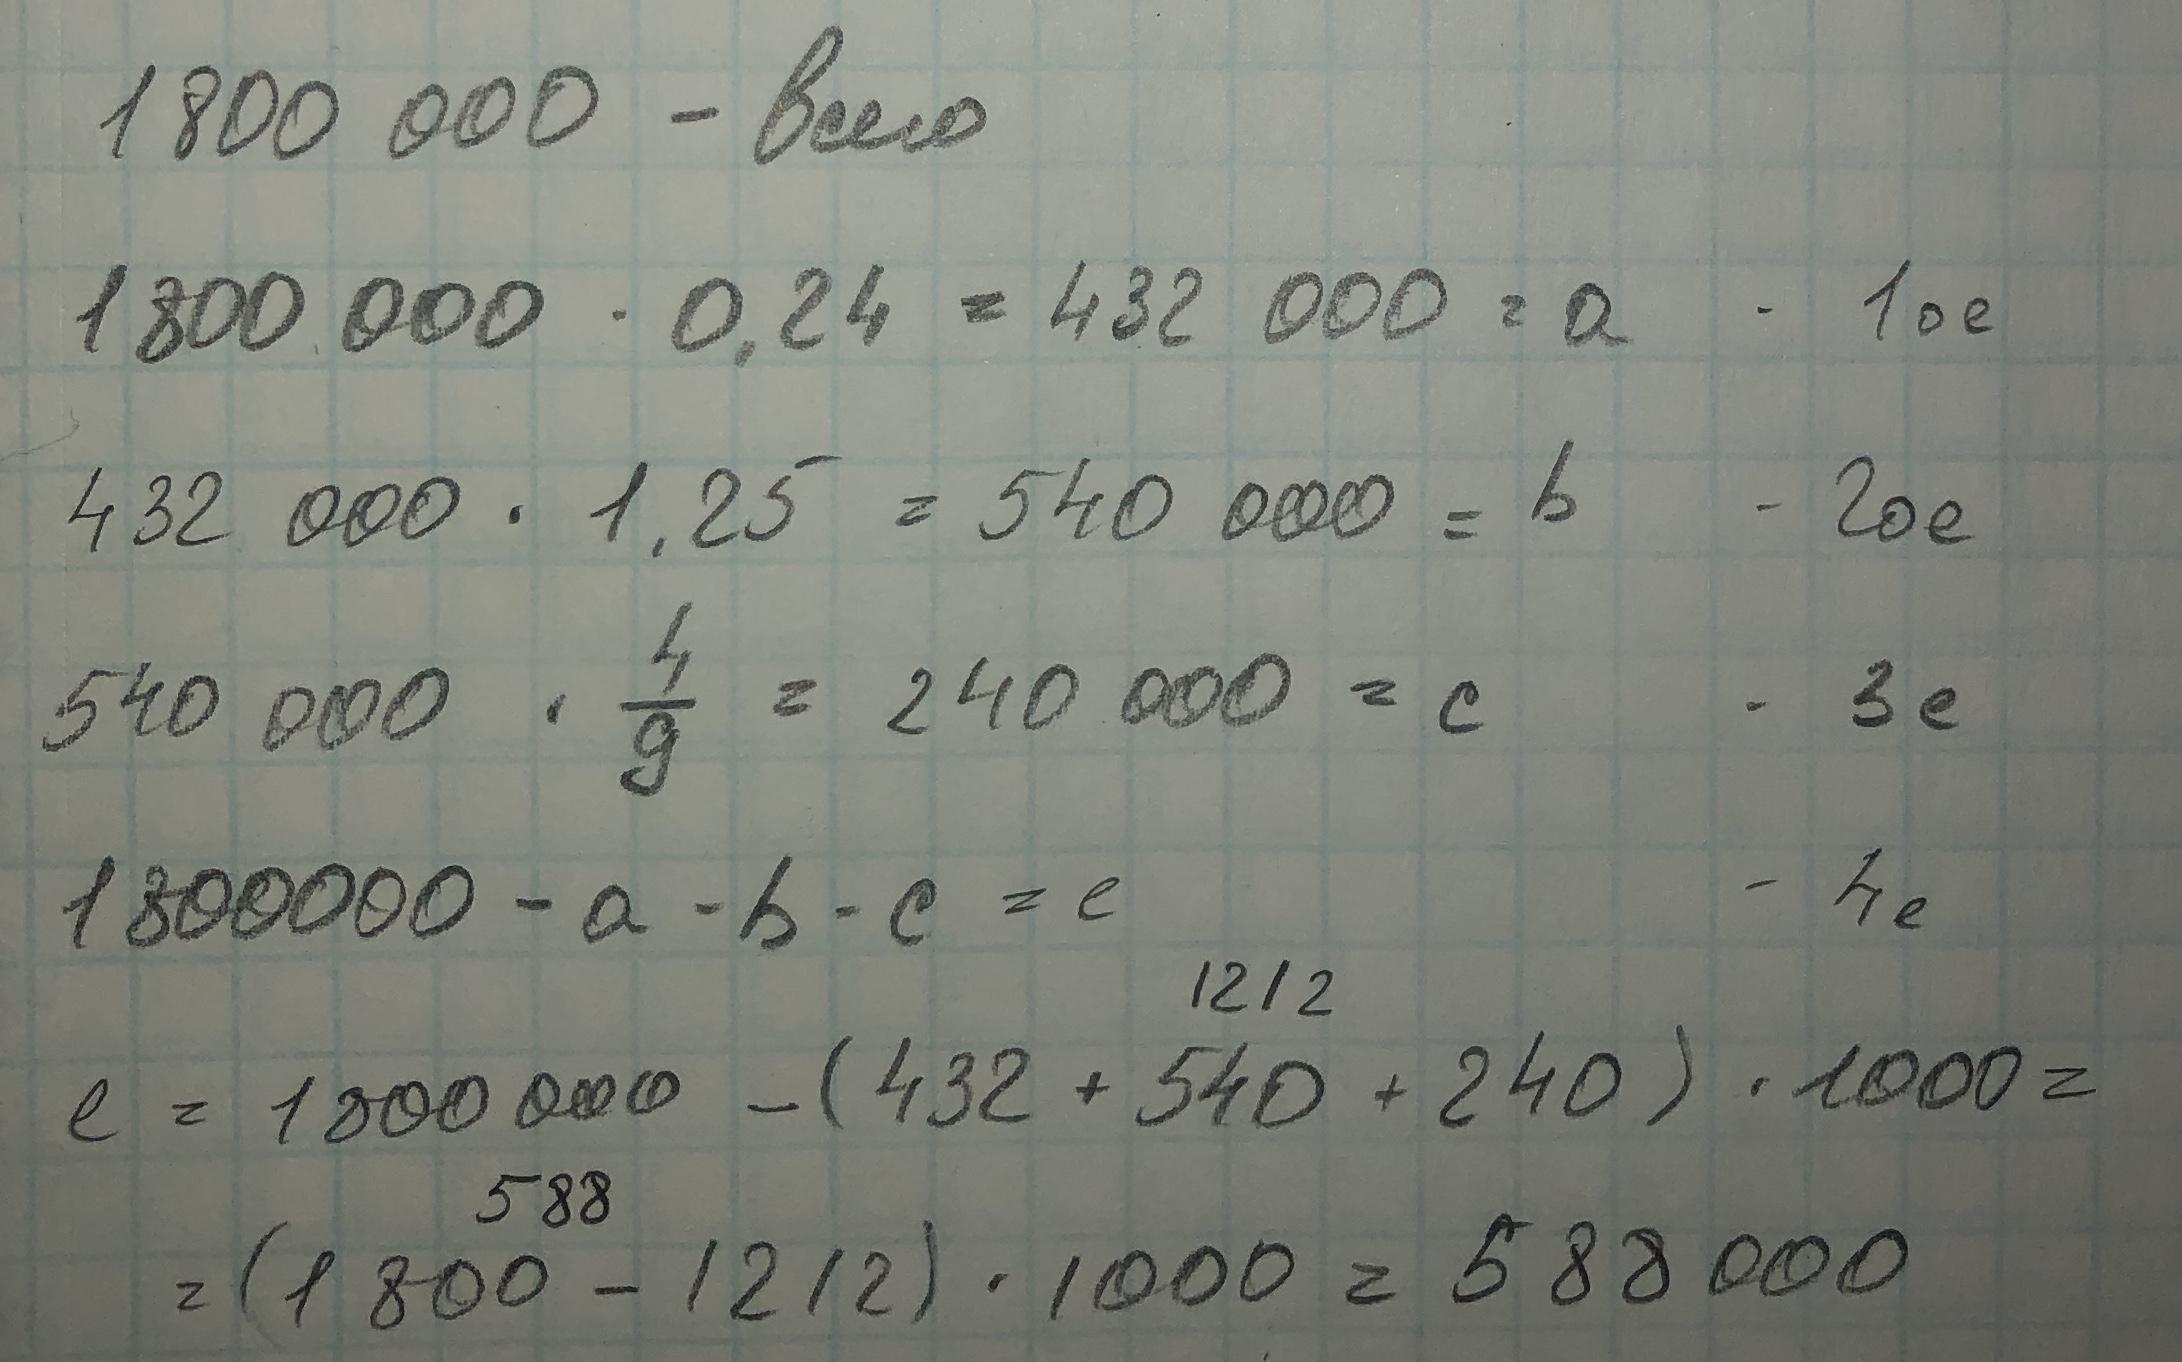 1800 000 - всего
1800 000 · 0,24 = 432 000 = a - 1ое
432 000 · 1,25 = 540 000 = b - 2ое
540 000 · 4/9 = 240 000 = c - 3е
1800000 - a - b - c = e - 4е
1212
e = 1800 000 - (432 + 540 + 240) · 1000 =
588
= (1800 - 1212) · 1000 = 588 000